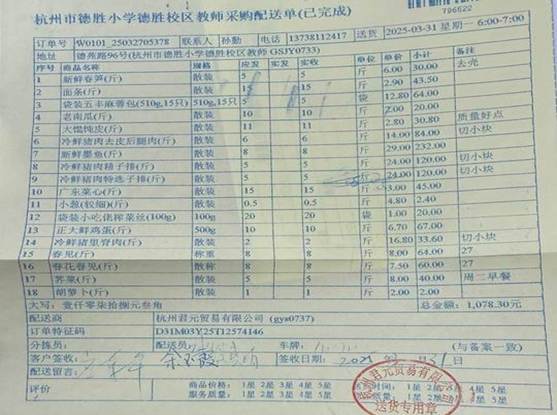 杭州市德胜小学德胜校区教师采购配送单(已完成)
796622
订单号 W0101_25032705378 联系人 孙勤 电话 13738112417 送货 2025-03-31 星期一 6:00-7:00
地址 德苑路96号(杭州市德胜小学德胜校区教师 GSJY0733)
序号 商品名称 规格 应发 实发 实收 单位 单价 小计 备注
1 新鲜春笋(斤) 散装 5 5 斤 6.00 30.00 去壳
2 面条(斤) 散装 15 15 斤 2.90 43.50
3 袋装五丰麻薯包(510g,15只) 510g,15只 5 5 袋 12.80 64.00
4 老南瓜(斤) 散装 10 10 斤 2.00 20.00
5 大馄饨皮(斤) 散装 11 11 斤 2.80 30.80 质量好点
6 冷鲜猪肉去皮后腿肉(斤) 散装 6 6 斤 14.00 84.00 切小块
7 新鲜墨鱼(斤) 散装 8 8 斤 29.00 232.00
8 冷鲜猪肉精子排(斤) 散装 5 5 斤 24.00 120.00 切小块
9 冷鲜猪肉特选子排(斤) 散装 5 5 24.00 120.00 切小块
10 广东菜心(斤) 散装 15 15 斤 3.00 45.00
11 小葱(较细)(斤) 散装 0.5 0.5 斤 4.80 2.40
12 袋装小吃佬榨菜丝(100g) 100g 20 20 袋 1.00 20.00
13 正大鲜鸡蛋(斤) 散装 10 10 斤 6.70 67.00
14 冷鲜猪里脊肉(斤) 散装 2 2 斤 16.80 33.60 切小块
15 春见(斤) 称重 8 8 斤 8.00 64.00 27
16 春花春见(斤) 散称 8 8 斤 7.50 60.00 27
17 荠菜(斤) 散装 5 5 斤 8.00 40.00 周二早餐
18 胡萝卜(斤) 散装 1 1 斤 2.00 2.00
大写: 壹仟零柒拾捌元叁角 总金额: 1,078.30元
配送商 杭州君元贸易有限公司 (gys0737)
订单特征码 D31M03Y25T12574146
分拣员: 配送员: 车牌 (与备案一致)
客户签收: 签收日期: 2025
配送留言:
评价 商品价格: 1星 2星 3星 4星 5星 时间: 1星 2星 3星 4星 5星
服务质量: 1星 2星 3星 4星 5星 1星 2星 3星 4星 5星
君元贸易有限公司
送货专用章